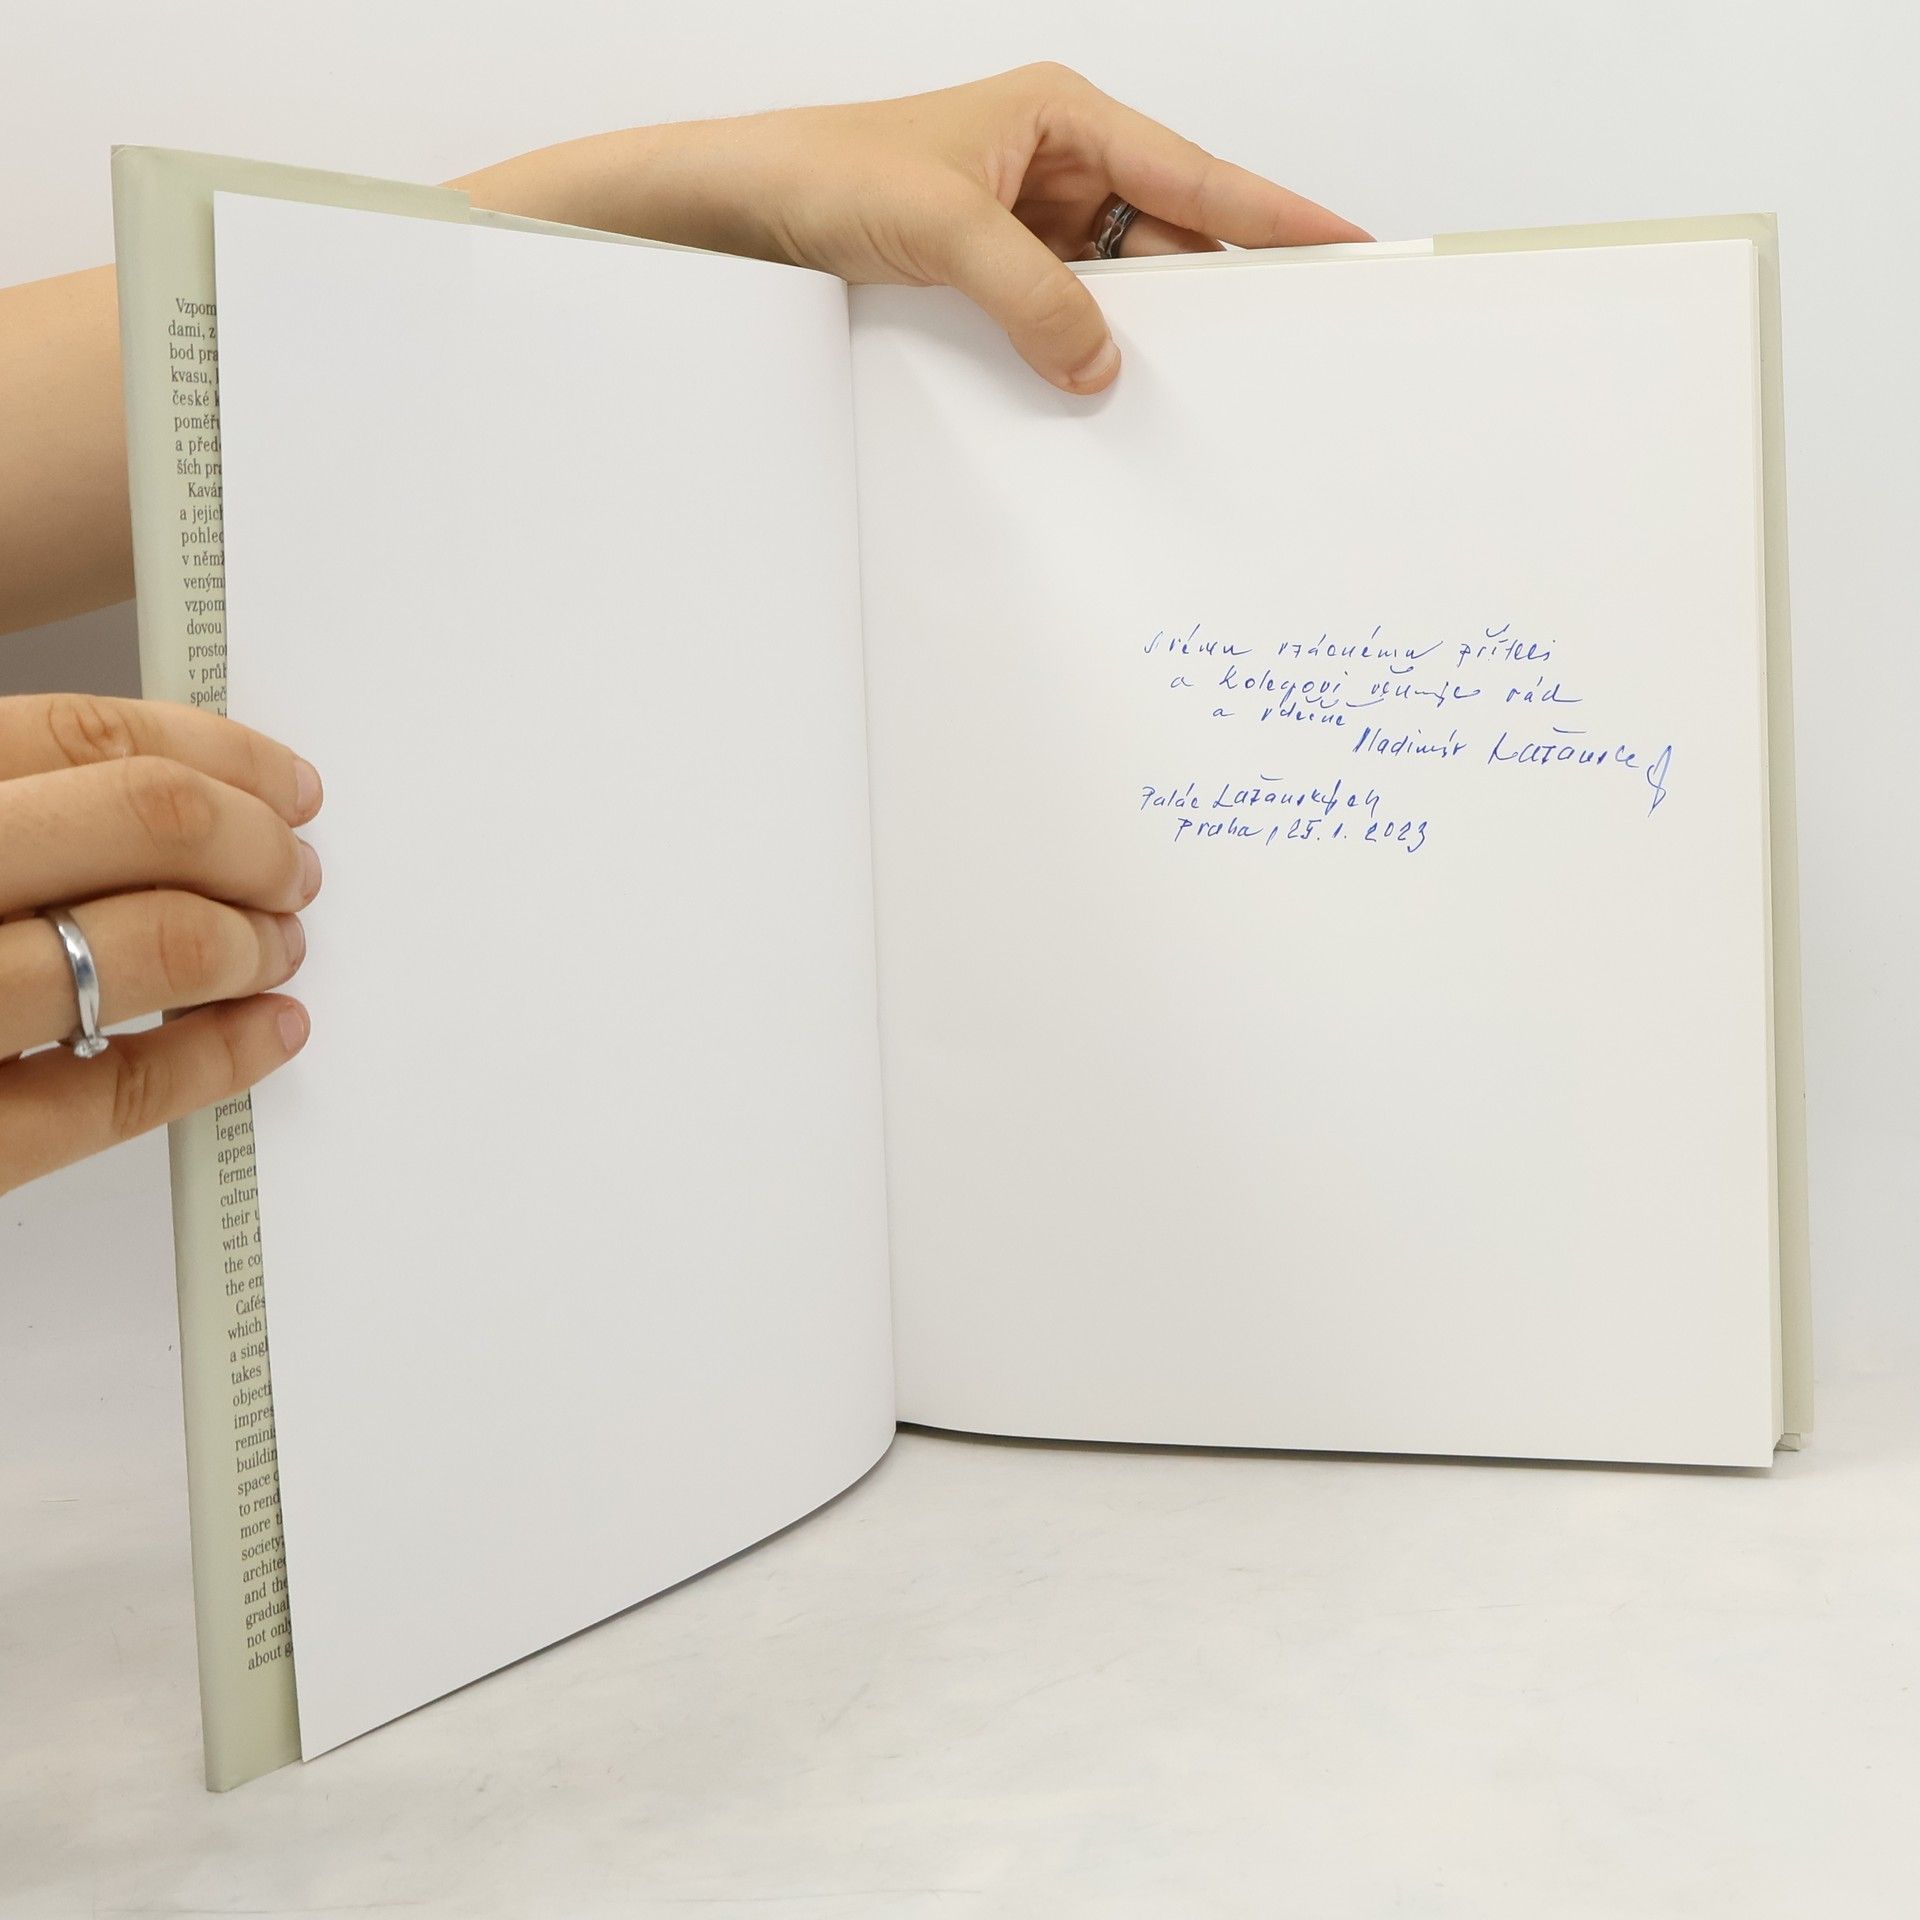 Vzpom
dami, z
bod pra
kvasu,
české k
poměř
a před
ších pra
Kavár
a jejich
pohled
v němž
veným
vzpom
dovou
prostor
v průb
společ
period
legend
appear
fermen
culture
their u
with d
the co
the em
Cafés
which
a singl
takes
objecti
impres
remini
buildin
space o
to rend
more t
society;
archite
and the
gradual
not only
about g
svému vzácnému příteli
a kolegovi věnuje rád
a vděčně
Vladimír Lažanský
Palác Lažanských
Praha, 25. 1. 2023